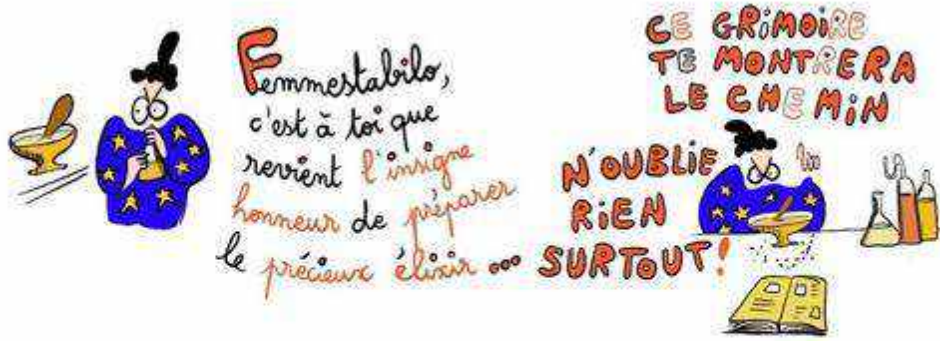 Femmestabilo,
c'est à toi que
revient l'insigne
honneur de préparer
le précieux élixir ...
CE GRiMOiRE
TE MONTRERA
LE CHEMiN
N'OUBLiE
RiEN
SURTOUT!